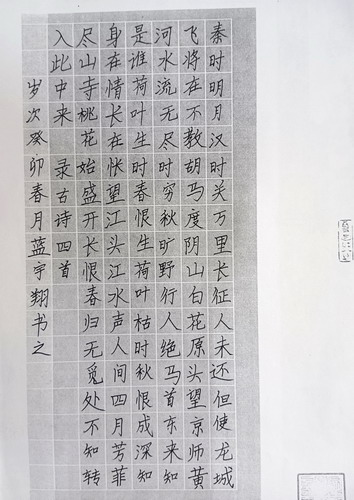 秦时明月汉时关万里长征人未还但使龙城
飞将在不教胡马度阴山白花原头望京师黄
河水流无尽时穷秋旷野行人绝马首东来知
是谁荷叶生时春恨生荷叶枯时秋恨成深知
身在情长在怅望江头江水声人间四月芳菲
尽山寺桃花始盛开长恨春归无觅处不知转
入此中来 录古诗四首
岁次癸卯春月蓝宇翔书之